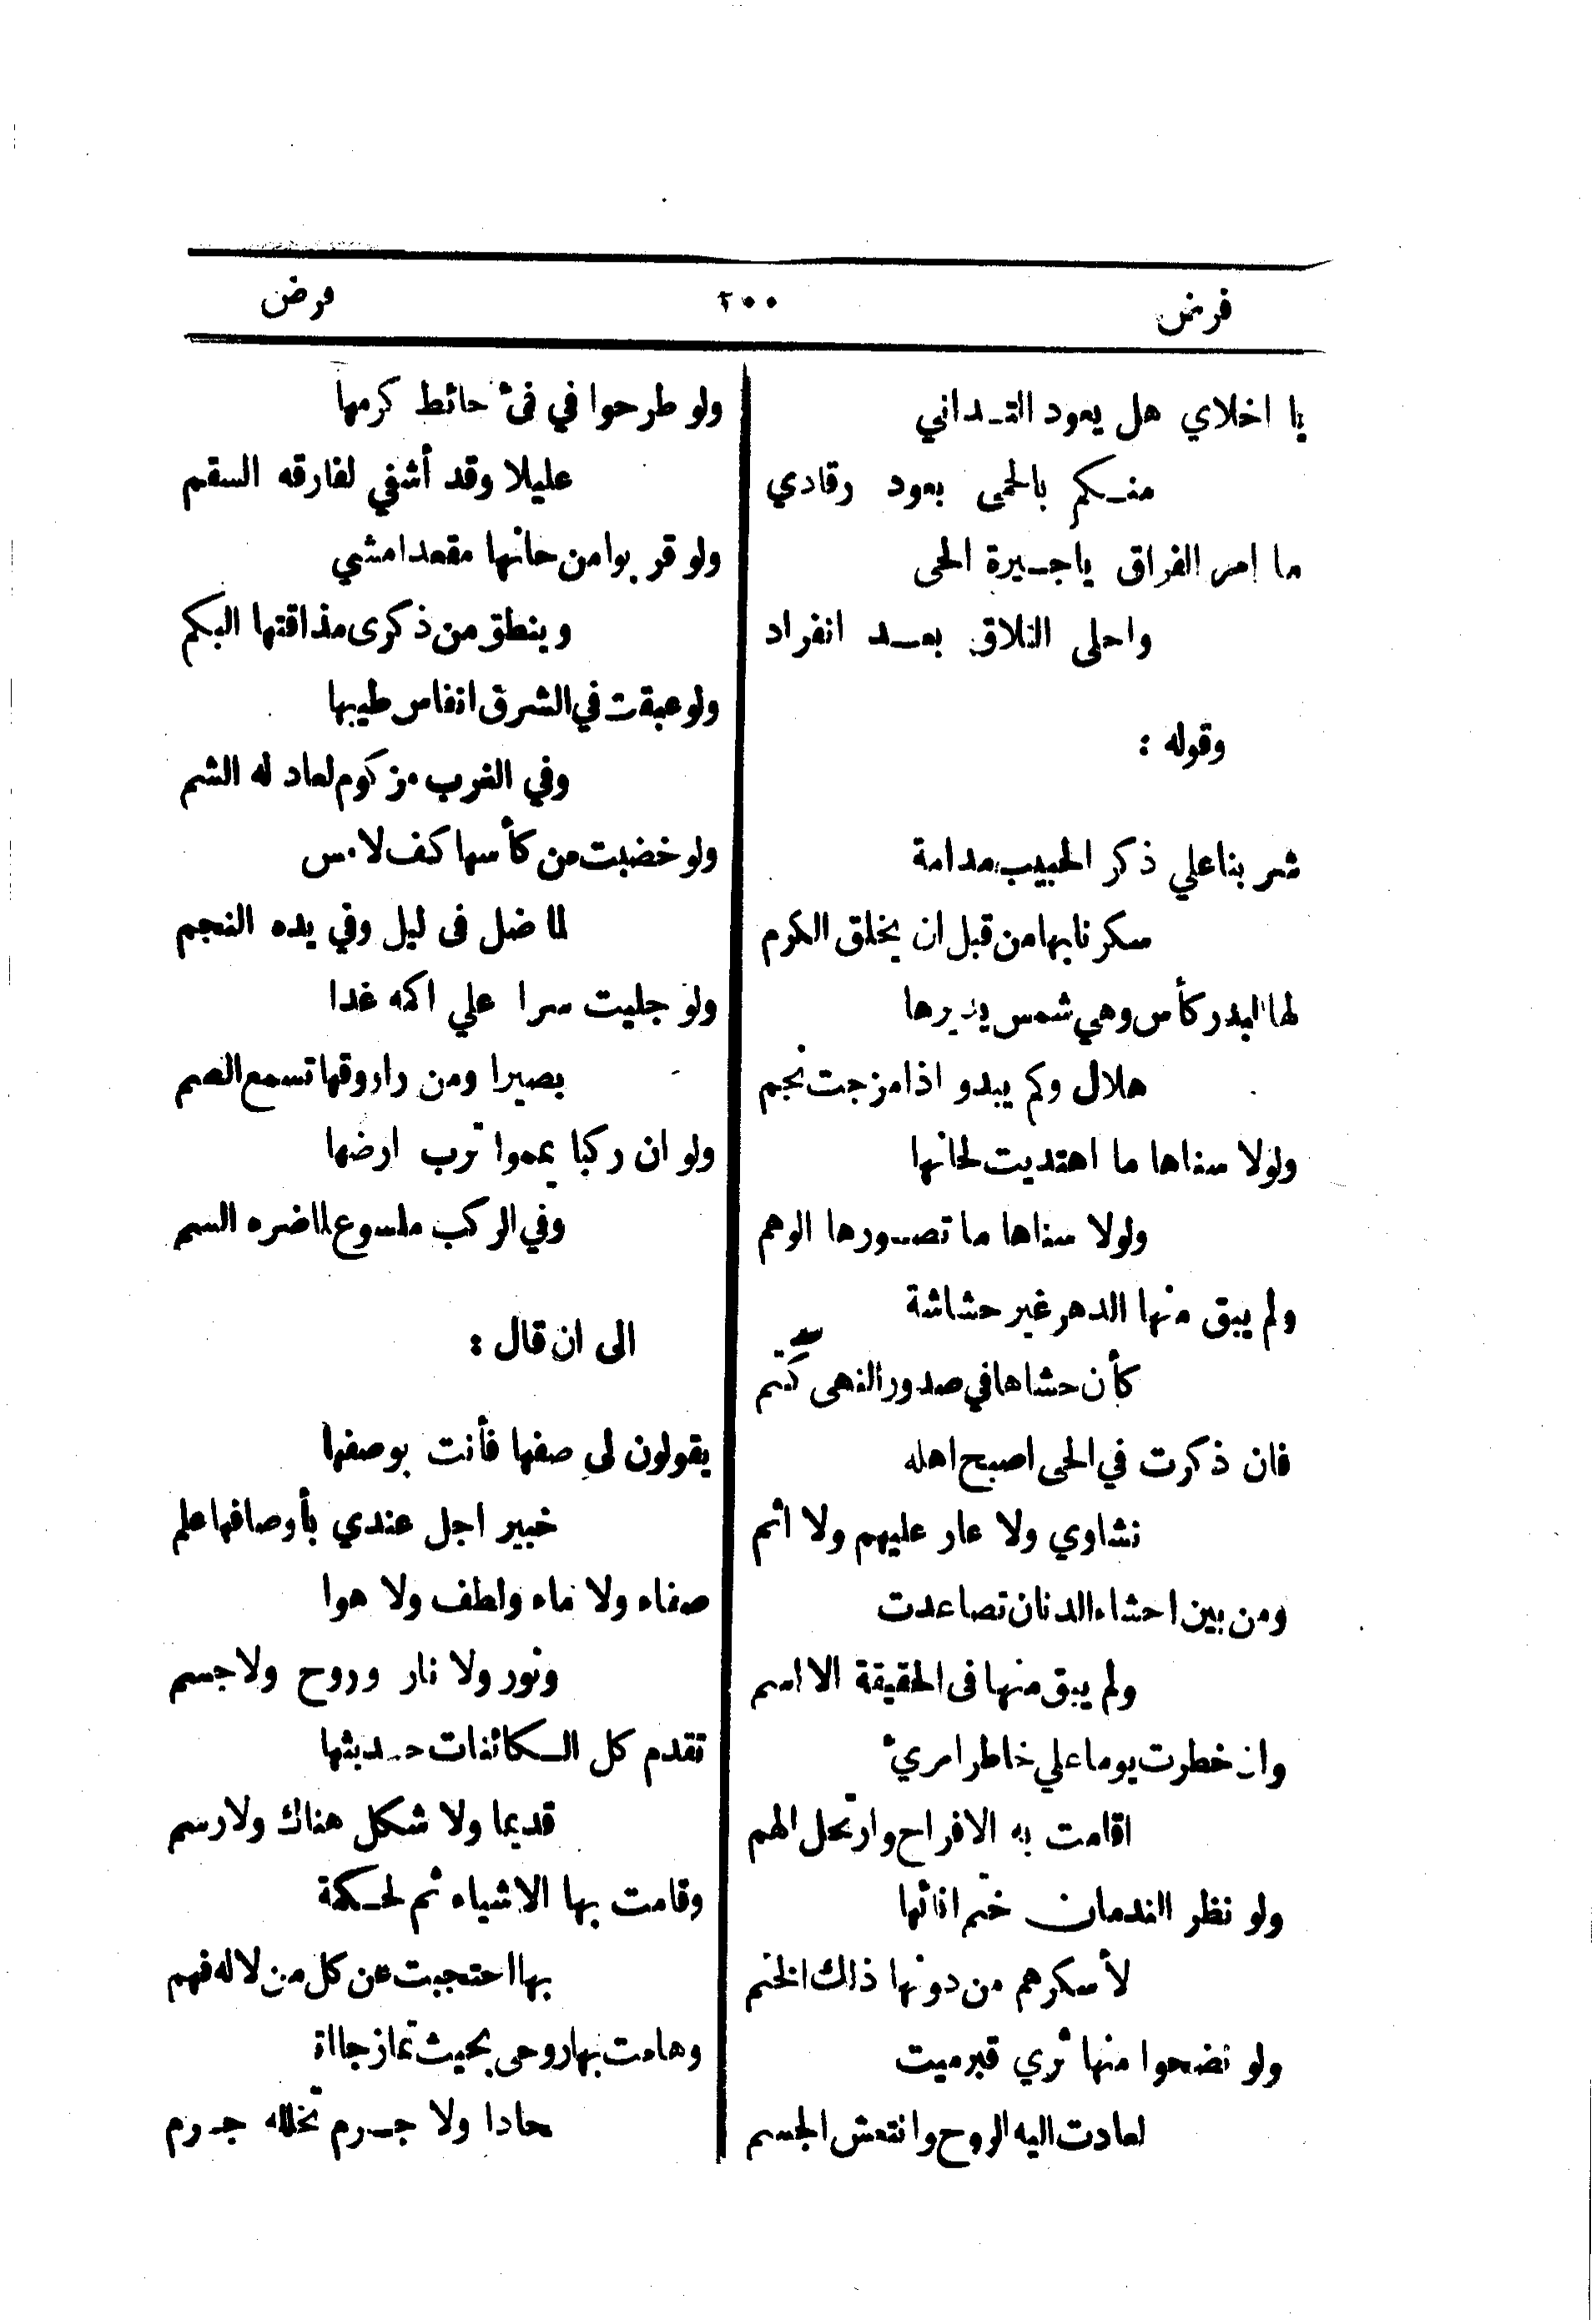 فرض ٢٠٠ فرض
يا اخلاي هل يعود التداني
منكم بالحمى بعود رقادي
ما امر الفراق يا جيرة الحي
واحلى التلاق بعد انفراد
وقوله :
شربنا علي ذكر الحبيب مدامة
سكرنا بها من قبل ان يخلق الكرم
لها البدر كأس وهي شمس يديرها
هلال وكم يبدو اذا مزجت نجم
ولولا سناها ما اهتديت لحانها
ولولا سناها ما تصورها الوهم
ولم يبق منها الدهر غير حشاشة
كأن حشاها في صدور النهى كتم
فان ذكرت في الحي اصبح اهله
نشاوي ولا عار عليهم ولا اثم
ومن بين احشاء الدنان تصاعدت
ولم يبق منها في الحقيقة الا اسم
وان خطرت يوما علي خاطر امريء
اقامت به الافراح وارتحل الهم
ولو نظر الندمان ختم انائها
لأسكرهم من دونها ذلك الختم
ولو نضحوا منها ثري قبر ميت
لعادت اليه الروح وانتعش الجسم
ولو طرحوا في فيء حائط كرمها
عليلا وقد أشفي لفارقه السقم
ولو قربوا من حانها مقعدا مشي
وينطق من ذكرى مذاقتها البكم
ولو عبقت في الشرق انفاس طيبها
وفي الغرب مزكوم لعاد له الشم
ولو خضبت من كأسها كف لامس
لما ضل في ليل وفي يده النجم
ولو جليت سرا علي اكمه غدا
بصيرا ومن راروقها تسمع الصم
ولو ان ركبا يمموا ترب ارضها
وفي الركب ملسوع لما ضره السم
الى ان قال :
يقولون لي صفها فأنت بوصفها
خبير اجل عندي بأوصافها علم
صفاء ولا ماء ولطف ولا هوا
ونور ولا نار وروح ولا جسم
تقدم كل الكائنات حديثها
قديما ولا شكل هناك ولا رسم
وقامت بها الاشياء ثم لحكمة
بها احتجبت عن كل من لا له فهم
وهامت بها روحي بحيث تمازجا ات
حادا ولا جرم تخلله جرم